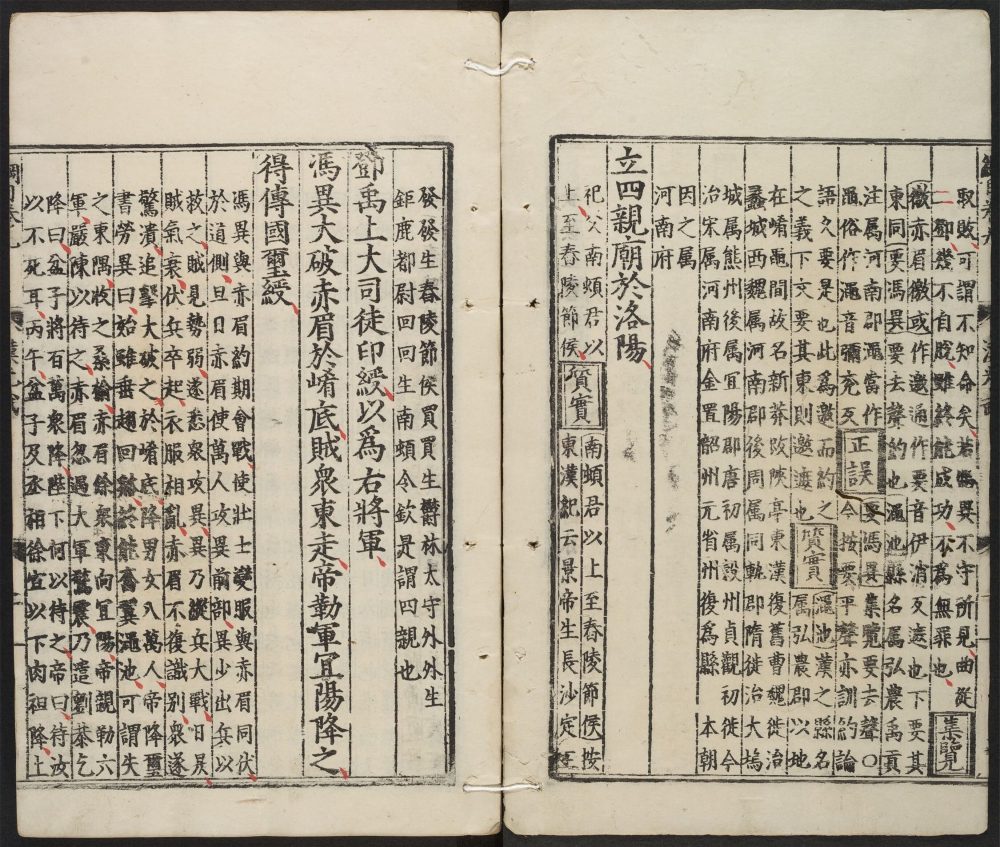 取敗可謂不知命矣若馮異不守所見曲從
二卻幾不自脫雖終能成功不為無罪也集覽
徼赤眉徼或作邀通作要音伊消反遮也下要其
東同要馮異要去聲約也澠池縣名屬弘農禹貢
注属河南郡澠當作
黽俗作澠音彌兖反
正誤
要馮異集覽要去聲○
今按要平聲亦訓約論
語久要是也此為邀而約之
之義下文要其東則邀遮也
質實
澠池漢之縣名
属弘農郡以地
在崤黽間故名新莽改陝亭東漢復舊曹魏徙治
蠡城西魏属河南郡後周属同軌郡隋徙治大塢
城属熊州後属宜陽郡唐初属穀州貞觀初徙今
治宋属河南府金置韶州元省州復為縣 本朝
因之属
河南府
立四親廟於洛陽
祀父南頓君以
上至舂陵節侯
質實
南頓君以上至舂陵節侯按
東漢記云景帝生長沙定王
發發生舂陵節侯買買生鬱林太守外外生
鉅鹿都尉回回生南頓令欽是謂四親也
鄧禹上大司徒印綬以為右將軍
馮異大破赤眉於崤底賊衆東走帝勒軍宜陽降之
得傳國璽綬
馮異與赤眉約期會戰使壯士變服與赤眉同伏
於道側旦日赤眉使萬人攻異前部異少出兵以
救之賊見勢弱遂悉衆攻異異乃縱兵大戰日昃
賊氣衰伏兵卒起衣服相亂赤眉不復識别衆遂
驚潰追擊大破之於崤底降男女八萬人帝降璽
書勞異曰始雖垂翅回谿終能奮翼澠池可謂失
之東隅收之桑榆赤眉餘衆東向宜陽帝親勒六
軍嚴陳以待之赤眉忽遇大軍驚震乃遣劉恭乞
降曰盆子將百萬衆降陛下何以待之帝曰待汝
以不死耳丙午盆子及丞相徐宣以下肉袒降上